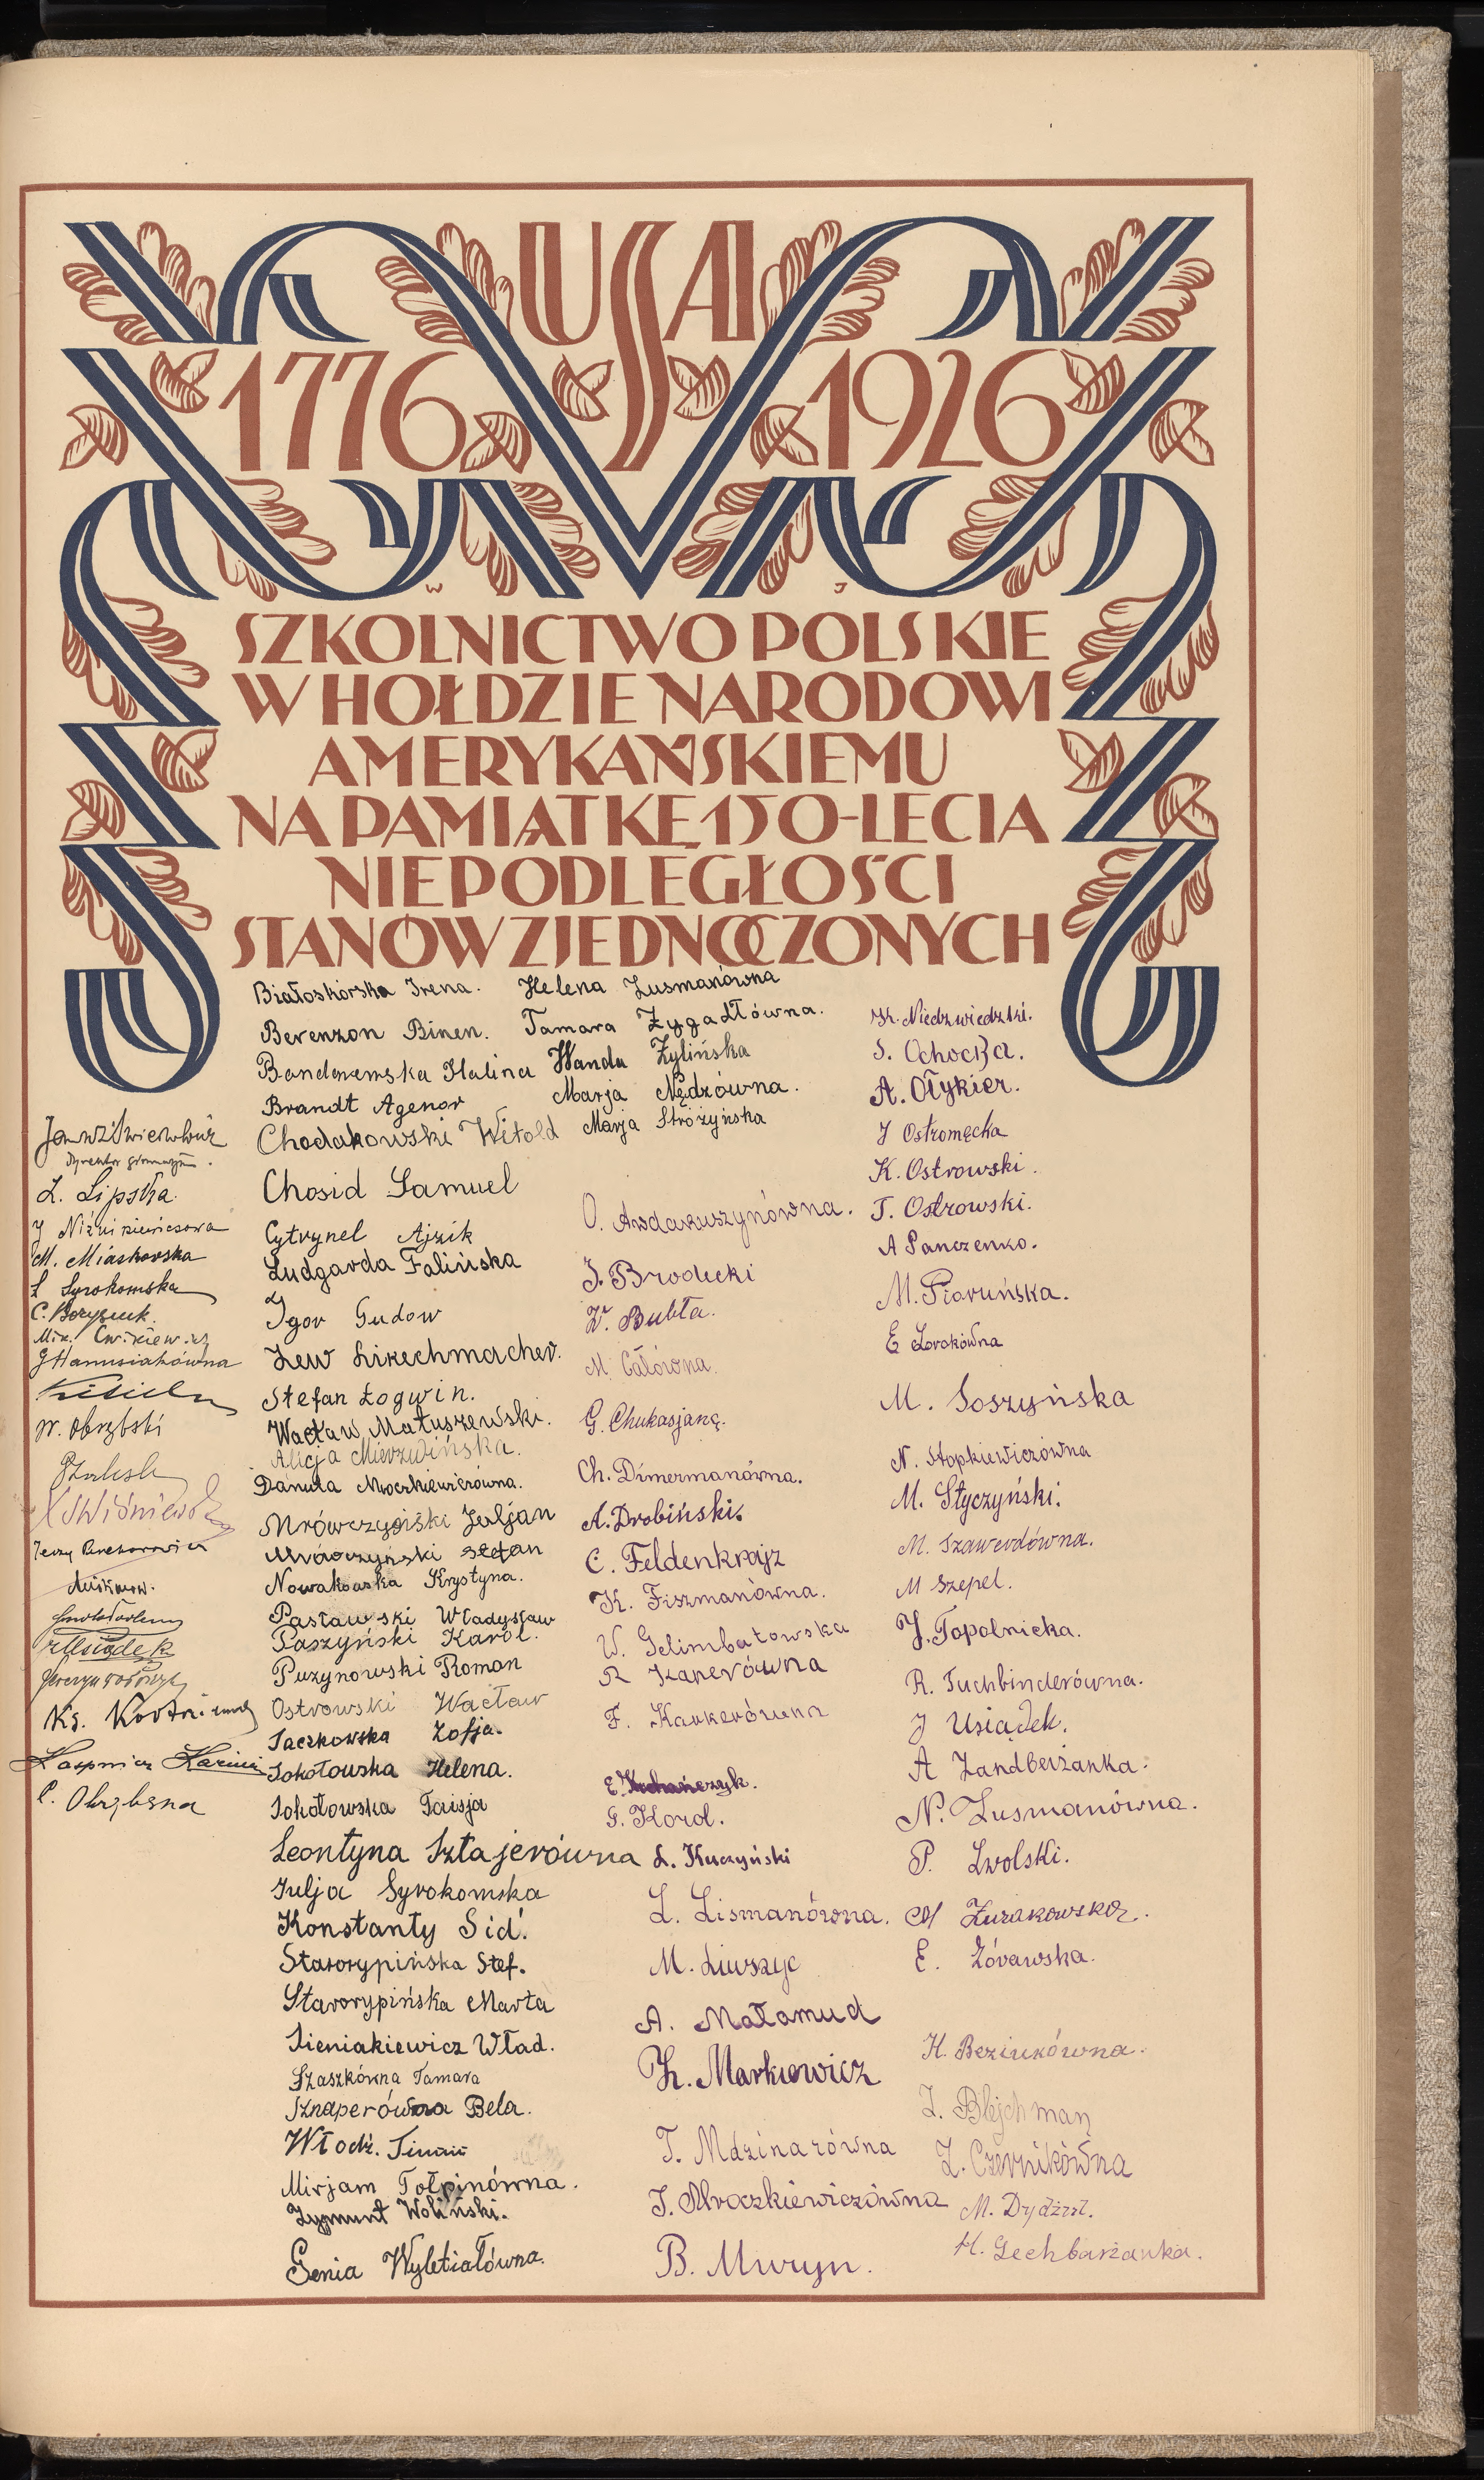 USA
1776 1926
W J
SZKOLNICTWO POLSKIE
W HOŁDZIE NARODOWI
AMERYKAŃSKIEMU
NA PAMIĄTKĘ 150-LECIA
NIEPODLEGŁOŚCI
STANÓW ZJEDNOCZONYCH
dyrektor gimnazjum.
L. Lipska.
M. Miaskowska
S. Syrokomska
C. Borysiuk.
J Hanusiakówna
W. Obrębski
Wiśniewski
Usiądek
Ks.
Kazimierz
Białoskórska Irena.
Berenzon Binen.
Halina
Brandt Agenor
Chodakowski Witold
Chosid Samuel
Cytrynel Ajzik
Ludgarda Falińska
Igor Gudow
Lew Lirechmacher.
Stefan Łogwin.
Wacław Matuszewski.
Alicja Mierzwińska.
Danuta Mroczkiewiczówna.
Mrówczyński Juljan
Mrówczyński Stefan
Nowakowska Krystyna.
Pasławski Władysław
Paszyński Karol.
Puzynowski Roman
Ostrowski Wacław
Saczkowska Zofja.
Sokołowska Helena.
Sokołowska Taisja
Leontyna Sztajerówna
Julja Syrokomska
Konstanty Sid.
Starorypińska Stef.
Starorypińska Marta
Sieniakiewicz Wład.
Szaszkówna Tamara
Sznaperówna Bela.
Włodz.
Mirjam Tołpinówna.
Zygmunt Woliński.
Genia Wyletiałówna.
Helena Zusmanówna
Tamara Żygadłówna.
Wanda Żylińska
Marja Nędzówna.
Marja Stróżyńska
O. Awdakuszynówna.
J. Brodecki
W. Bubła.
M. Całówna.
G. Chukasjanc.
Ch. Dimermanówna.
A. Drobiński.
C. Feldenkrajz
K. Fiszmanówna.
W. Gelimbatowska
R Kanerówna
F. Karkerówna
E. Kochańczyk.
G. Korol.
L. Kuczyński
L. Lismanówna.
M. Liwszyc
A. Małamud
K. Markiewicz
T. Mdzinarówna
J. Mroczkiewiczówna
B. Mwryn.
K. Niedzwiedzki.
S. Ochocka.
A. Ołykier.
J Ostromęcka
K. Ostrowski.
T. Ostrowski.
A Panczenko.
M. Piorunska.
E Lorokówna
M. Soszyńska
N. Stopkiewiczówna
M. Styczyński.
M. Szawerdówna.
M Szepel.
J. Topolnicka.
R. Tuchbinderówna.
J Usiądek.
A Zandberżanka.
N. Zusmanówna.
P. Zwolski.
M Żurakowska.
E. Żórawska.
H. Beziukówna.
Z. Blejchman
Z. Czernikówna
H. Gechbarżanka.